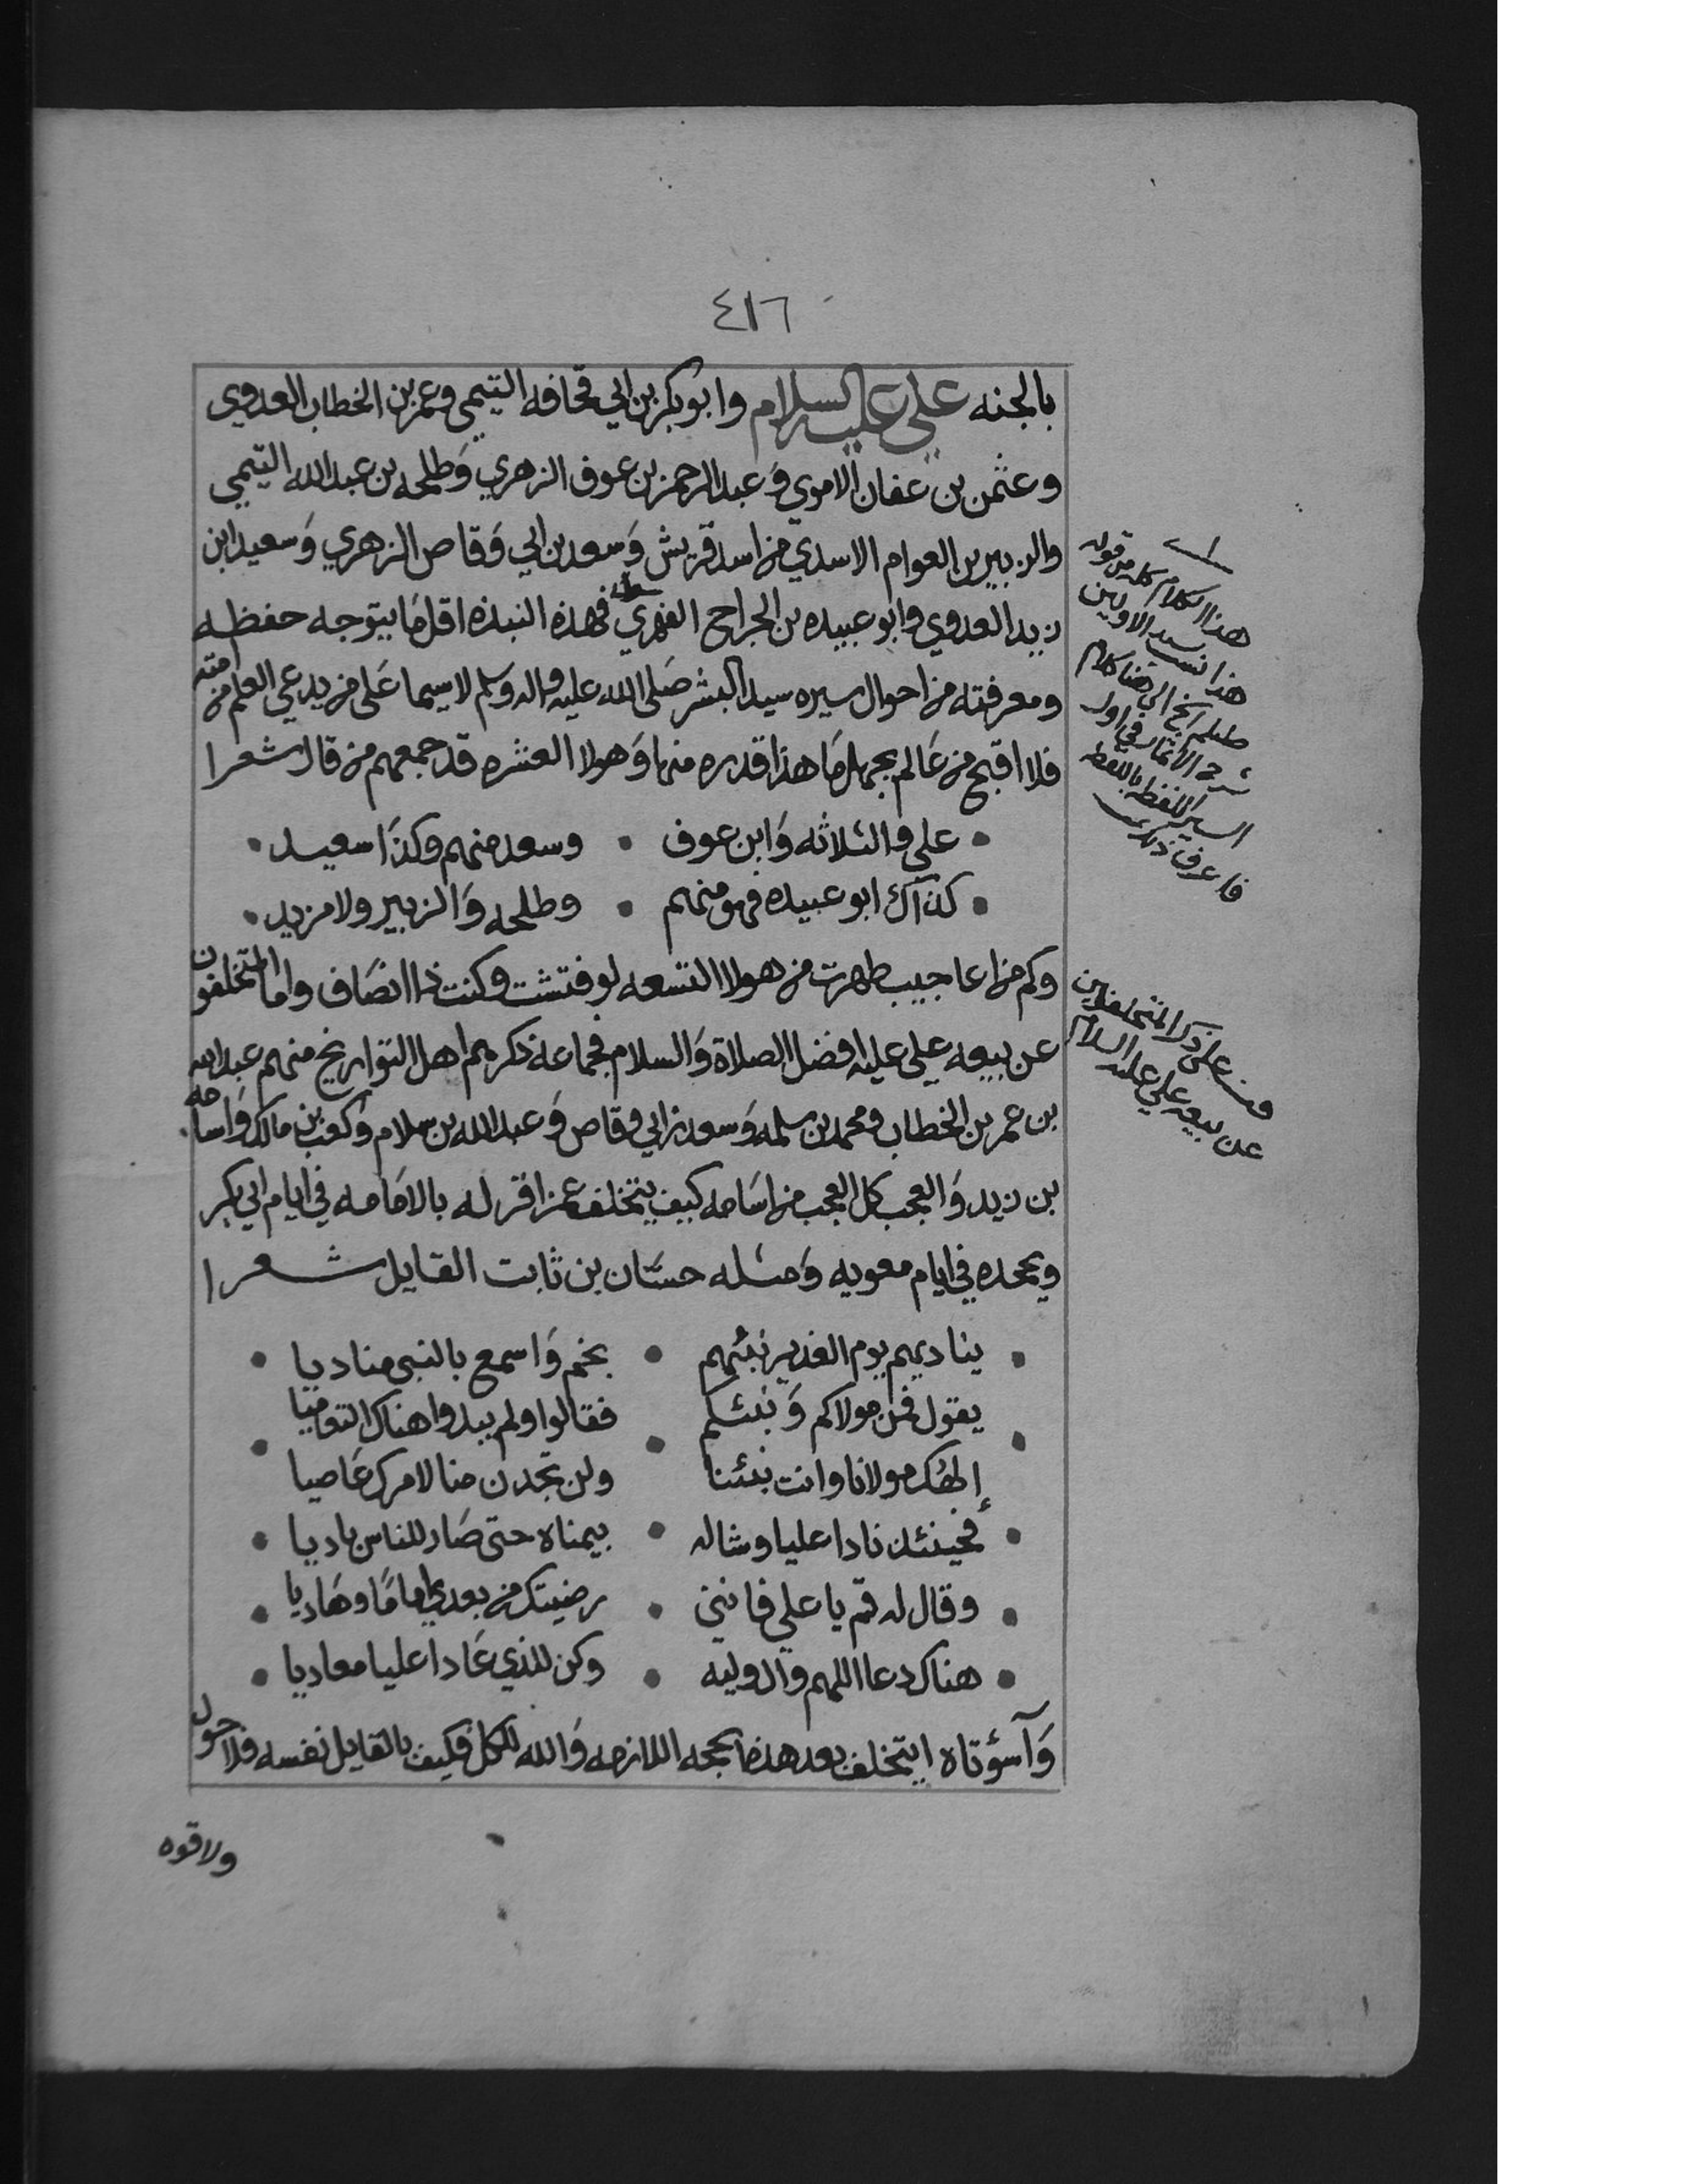 ٤١٦
بالجنه علي عليه السلام وابو بكر بن ابي قحافه التيمي وعمر بن الخطاب العدوي
وعثمن بن عفان الاموي وَعبد الرحمن بن عوف الزهري وَطلحه بن عبد الله التيمي
والزبير بن العوام الاسدي من اسد قريش وَسعد بن ابي وَقاص الزهري وَسعيد ابن
زيد العدوي وابو عبيده بن الجراح الفهري فهذه النبذه اقل مَا يتوجه حفظه
ومعرفته من احوال سيره سيد البشر صَلى الله عليه واله وسلم لا سيما عَلى من يدعي العلم من امته
فلا اقبح من عَالم يجهل مَا هذا قدره منها وَهولا العشره قد جمعهم من قال شعرا
علي والثلاثه وَابن عوف • وسعد منهم وكذَا سعيد
كذاك ابو عبيده فهو منهم • وطلحه وَالزبير ولا مزيد
وكم من اعاجيب ظهرت من هولا التسعه لو فتشت وكنت ذا انصَاف واما المتخلفون
عن بيعه علي عليه افضل الصلاة وَالسلام فجماعه ذكرهم اهل التواريخ منهم عبد الله
بن عمر بن الخطاب ومحمد بن سلمه وَسعد بن ابي وقاص وَعبد الله بن سلام وَكعب بن مالك وَاسامه
بن زيد وَالعجب كل العجب من اسَامه كيف يتخلف عمن اقر له بالامَامه في ايام ابي بكر
ويجحده في ايام معويه وَمثله حسَّان بن ثابت القايل شعرا
يناديهم يوم الغدير نبئهم • بخم وَاسمع بالنبي مناديا
يقول فمن مولاكم وَنبئكم • فقالوا ولم يبدوا هناك التعاميا
إلهك مولانا وانت نبئنا ولن تجدن منا لامرك عَاصيا
فحينئذ نادا عليا وشاله • بيمناه حتى صَار للناس باديا
وقال له قم يا علي فانني • رضيتك من بعدي امامَا وهَاديا
هناك دعا اللهم وَال وليه • وكن للذي عَادا عليا معاديا
وَآسؤتاه ايتخلف بعد هذه الحجه اللازمه وَالله للكل فكيف بالقايل نفسه فلا حول
ولا قوه
هذا الكلام كله من قوله
هذا نسب سيد الاولين
صللم الخ الى هنا كلام
شرح الاثمار في اول
السير اللفظ باللفظ
فاعرف ذلك
قف على ذكر المتخلفين
عن بيعه علي عليه السلام